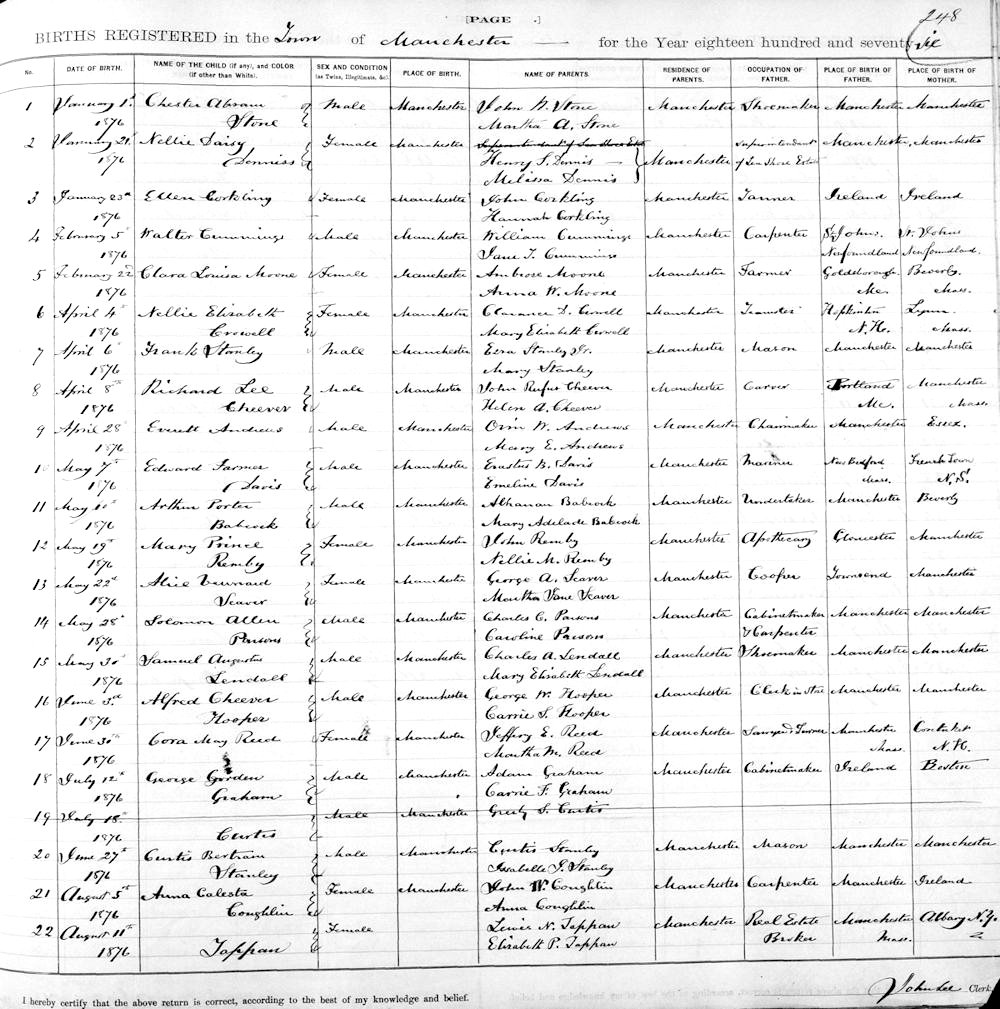 [PAGE .]
248
BIRTHS REGISTERED in the Town of Manchester — for the Year eighteen hundred and seventy-six
No. DATE OF BIRTH. NAME OF THE CHILD (if any), and COLOR (if other than White). SEX AND CONDITION (as Twins, Illegitimate, &c.) PLACE OF BIRTH. NAME OF PARENTS. RESIDENCE OF PARENTS. OCCUPATION OF FATHER. PLACE OF BIRTH OF FATHER. PLACE OF BIRTH OF MOTHER.
1 January 1st Chester Abram Male Manchester John W. Stone Manchester Shoemaker Manchester Manchester
1876 Stone Martha A. Stone
2 January 21st Nellie Daisy Female Manchester Superintendent of Sea Shore Estate Superintendent Manchester Manchester
1876 Denniss Henry F. Dennis — Manchester of Sea Shore Estate
Melissa Dennis
3 January 23d Ellen Corkling Female Manchester John Corkling Manchester Tanner Ireland Ireland
1876 Hannah Corkling
4 February 5 Walter Cummings Male Manchester William Cummings Manchester Carpenter St Johns. St. Johns
1876 Jane T. Cummings Newfoundland Newfoundland.
5 February 22 Clara Louisa Moone Female Manchester Ambrose Moone Manchester Farmer Goldsborough Beverly.
1876 Anna W. Moone Me. Mass.
6 April 4 Nellie Elizabeth Female Manchester Clarance S. Crowell Manchester Hopkinton Lynn.
1876 Crowell Mary Elizabeth Crowell N. H. Mass.
7 April 6 Frank Stanley Male Manchester Ezra Stanley Jr. Manchester Mason Manchester Manchester
1876 Mary Stanley
8 April 8th Richard Lee Male Manchester John Rufus Cheever Manchester Carver Portland Manchester
1876 Cheever Helen A. Cheever Me. Mass.
9 April 28 Everett Andrews Male Manchester Orin W. Andrews Manchester Chairmaker Manchester Essex.
1876 Mary E. Andrews
10 May 7 Edward Farmer Male Manchester Erastus B. Davis Manchester Mariner New Bedford French Town
1876 Davis Emeline Davis Mass. N.S.
11 May 10th Arthur Porter Male Manchester Abhanan Babcock Manchester Undertaker Manchester Beverly
1876 Babcock Mary Adelade Babcock
12 May 19th Mary Prince Female Manchester John Remby Manchester Apothecary Gloucester Manchester
1876 Remby Nellie M. Remby
13 May 22d Alice Female Manchester George A. Seaver Manchester Cooper Townsend Manchester
1876 Seaver Martha Jane Seaver
14 May 28 Solomon Allen Male Manchester Charles C. Parsons Manchester Cabinetmaker Manchester Manchester
1876 Parsons Caroline Parson & Carpenter
15 May 30 Samuel Augustus Male Manchester Charles A. Lendall Manchester Shoemaker Manchester Manchester
1876 Lendall Mary Elisabeth Lendall
16 June 3d Alfred Cheever Male Manchester George W. Hooper Manchester Clerk in Store Manchester Manchester
1876 Hooper Carrie S. Hooper
17 June 30th Cora May Reed Female Manchester Jeffery E. Reed Manchester Sawyer & Turner Manchester
1876 Martha M. Reed Mass. N.H.
18 July 12th George Gorden Male Manchester Adam Graham Manchester Cabinetmaker Ireland Boston
1876 Graham Carrie F. Graham
19 July 18th Male Manchester Greely S. Curtis
1876 Curtis
20 June 27th Curtis Bertram Male Manchester Curtis Stanley Manchester Mason Manchester Manchester
1876 Stanley Issabella J. Stanley
21 August 5th Anna Calesta Female Manchester John W. Coughlin Manchester Carpenter Manchester Ireland
1876 Coughlin Anna Coughlin
22 August 11th Female Lewis N. Tappan Manchester Real Estate Manchester Albany N.Y.
1876 Tappan Elizabeth P. Tappan Broker Mass.
I hereby certify that the above return is correct, according to the best of my knowledge and belief.
John Lee Clerk.